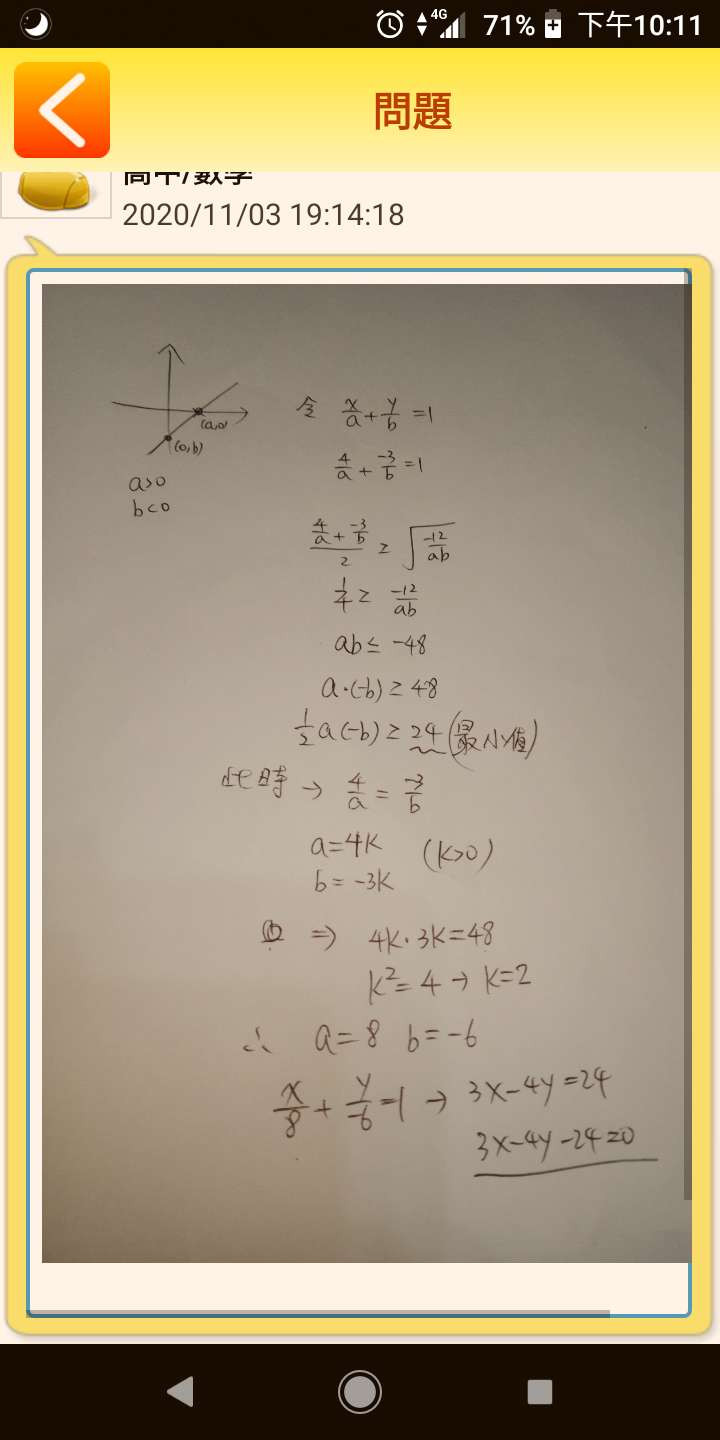 4G 71% 下午10:11
問題
高中/數學
2020/11/03 19:14:18
(a,0)
(0,b)
a>0
b<0
令 x/a + y/b = 1
4/a + -3/b = 1
(4/a + -3/b)/2 ≥ √(-12/ab)
1/4 ≥ -12/ab
ab ≤ -48
a·(-b) ≥ 48
1/2 a(-b) ≥ 24 (最小值)
此時 → 4/a = -3/b
a=4k (k>0)
b=-3k
⇒ 4k·3k=48
k²=4 → k=2
∴ a=8 b=-6
x/8 + y/-6 = 1 → 3x-4y=24
3x-4y-24=0